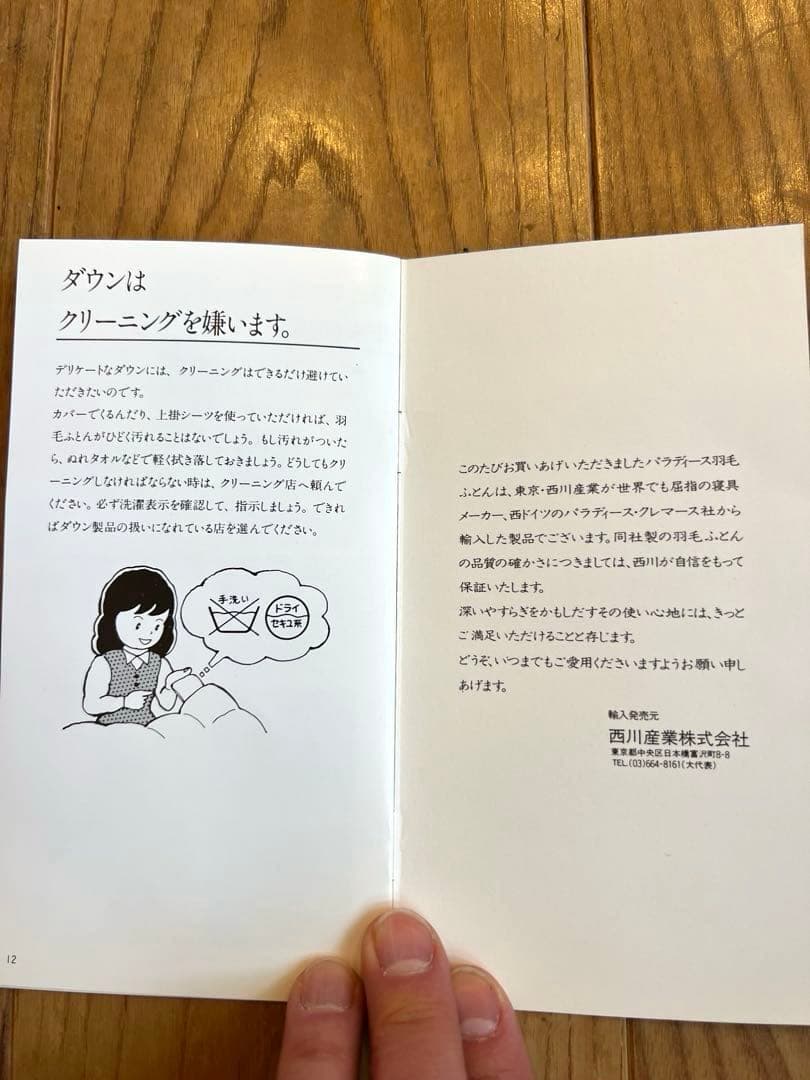 ダウンは
クリーニングを嫌います。
デリケートなダウンには、クリーニングはできるだけ避けてい
ただきたいのです。
カバーでくるんだり、上掛シーツを使っていただければ、羽
毛ふとんがひどく汚れることはないでしょう。もし汚れがついた
ら、ぬれタオルなどで軽く拭き落しておきましょう。どうしてもクリ
ーニングしなければならない時は、クリーニング店へ頼んで
ください。必ず洗濯表示を確認して、指示しましょう。できれ
ばダウン製品の扱いになれている店を選んでください。
手洗い
ドライ
セキユ系
12
このたびお買いあげいただきましたパラディース羽毛
ふとんは、東京・西川産業が世界でも屈指の寝具
メーカー、西ドイツのパラディース・クレマース社から
輸入した製品でございます。同社製の羽毛ふとん
の品質の確かさにつきましては、西川が自信をもって
保証いたします。
深いやすらぎをかもしだすその使い心地には、きっと
ご満足いただけることと存じます。
どうぞ、いつまでもご愛用くださいますようお願い申し
あげます。
輸入発売元
西川産業株式会社
東京都中央区日本橋富沢町8-8
TEL.(03)664-8161(大代表)